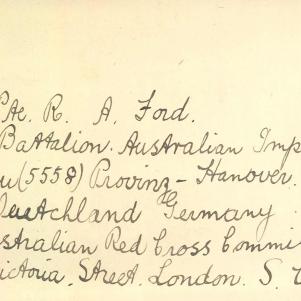 Pte. R. A. Ford.
Battalion. Australian Imp
u (5558) Provinz - Hanover.
Deutchland Germany
stralian Red Cross Commi
ictoria. Street. London. S.